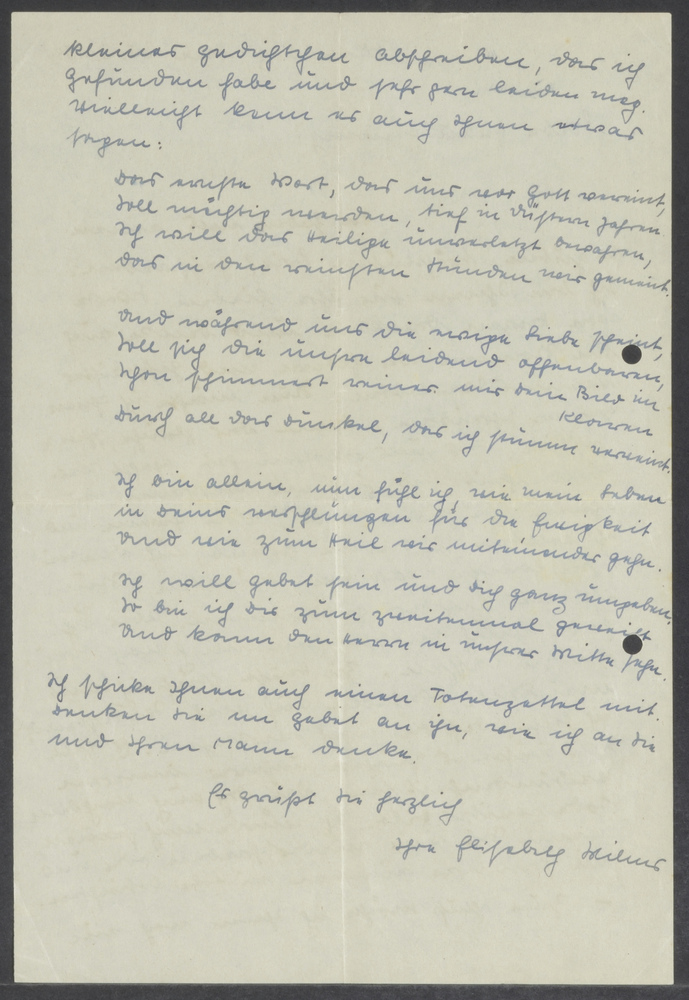 kleines Gedichtchen abschreiben, das ich
gefunden habe und sehr gern leiden mag.
Vielleicht kann es auch Ihnen etwas
sagen:
Das ernste Wort, das uns vor Gott vereint,
Soll mächtig werden, tief in düstern Jahren
Ich will das Heilige unverletzt bewahren,
Das in den reinsten Stunden wir gemeint.
Und während uns die ewige Liebe scheint,
Soll sich die unsre leidend offenbaren,
Schon schimmert reiner mir Dein Bild im
klaren
Durch all das Dunkel, das ich stumm verweint.
Ich bin allein, nun fühl ich, wie mein Leben
in Deins verschlungen für die Ewigkeit
Und wie zum Heil wir miteinander gehn.
Ich will Gebet sein und Dich ganz umgeben.
So bin ich Dir zum zweitenmal geweiht
Und kann den Herrn in unsrer Mitte sehn.
Ich schicke Ihnen auch einen Totenzettel mit.
Denken Sie im Gebet an ihn, wie ich an Sie
und Ihren Mann denke.
Es grüßt Sie herzlich
Ihre Elisabeth Wilms